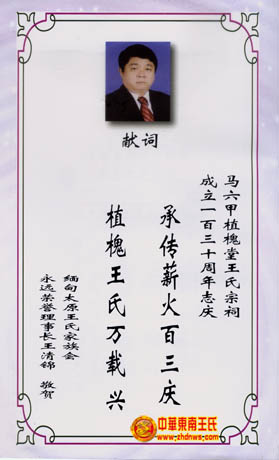 献词
马六甲植槐堂王氏宗祠
成立一百三十周年志庆
承传薪火百三庆
植槐王氏万载兴
缅甸太原王氏家族会
永远荣誉理事长王清锦 敬贺
中華東南王氏
www.zhdnws.com